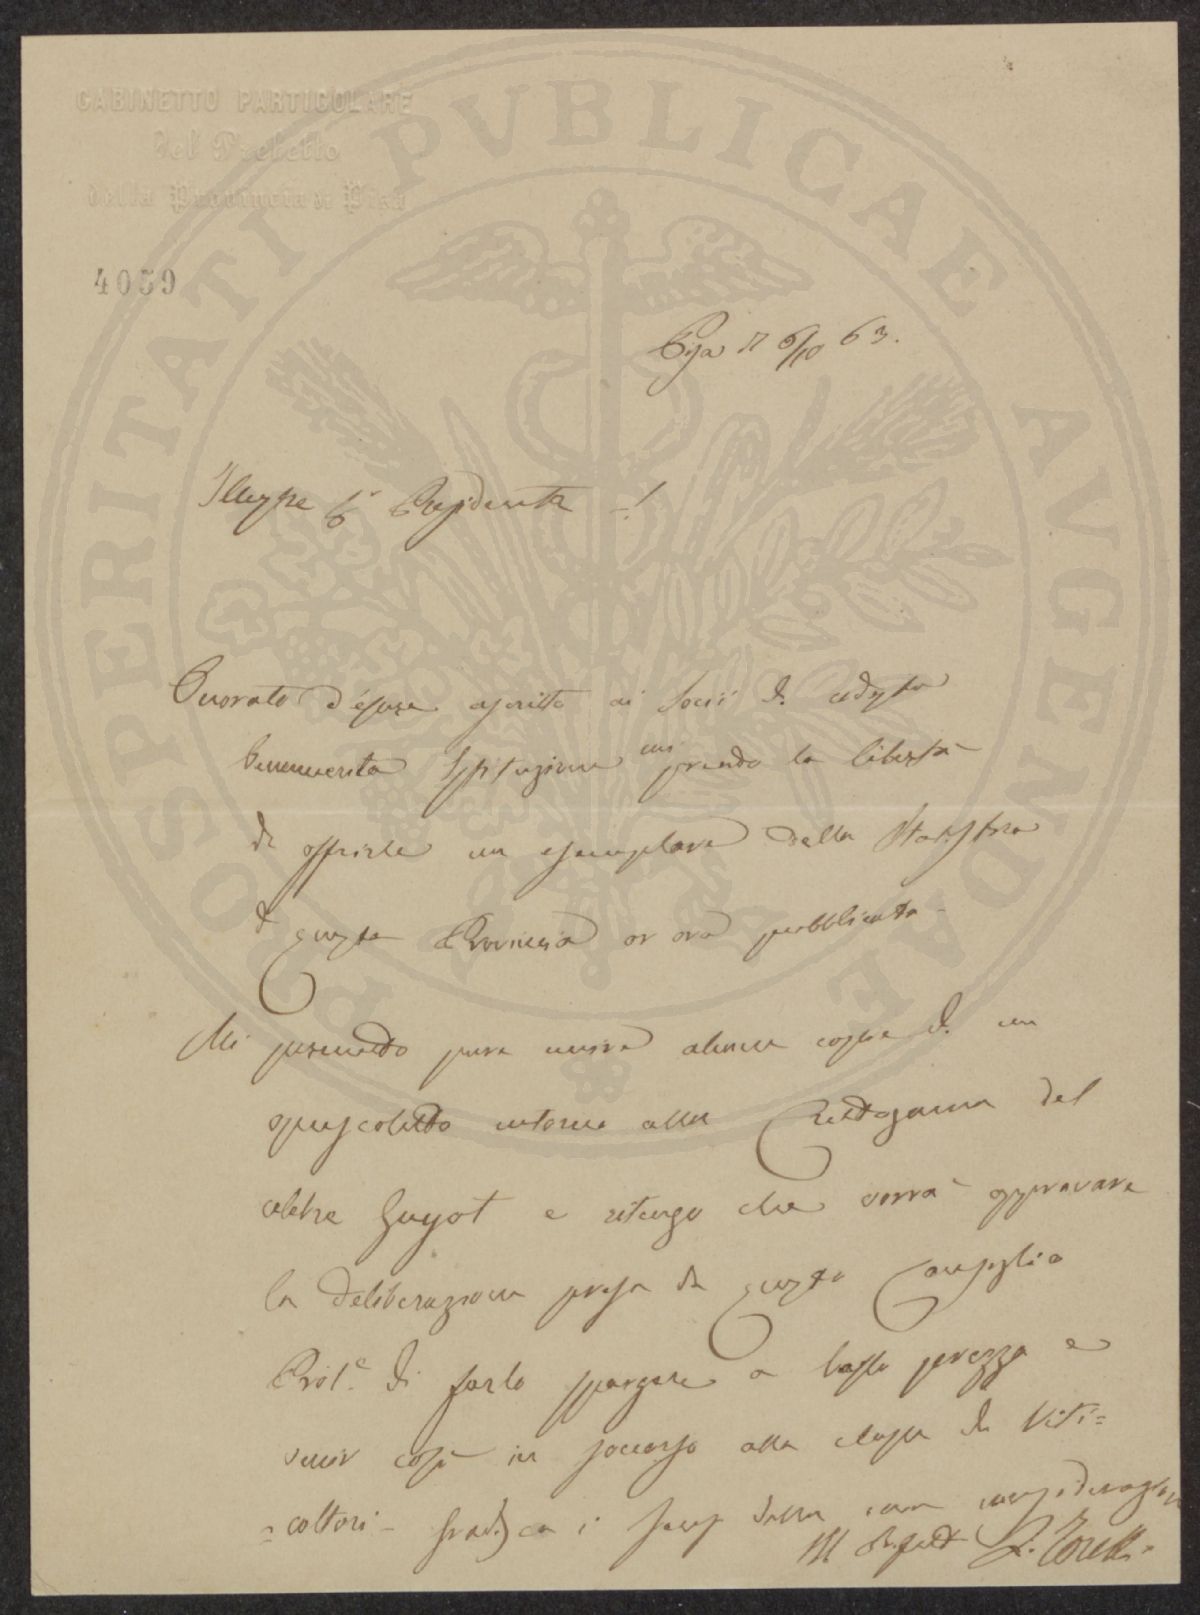 GABINETTO PARTICOLARE
del Prefetto
della Provincia di Pisa
4059
PROSPERITATI PVBLICAE AVGENDAE
Pisa 17 6/10 63.
Illustre Sr Presidente !
Onorato d'essere ascritto ai Socii di codesta
benemerita Istituzione mi prendo la libertà
di offrirle un esemplare della Statistica
di questa Provincia or ora pubblicata.
Mi permetto pure unire alcune copie di un
opuscoletto intorno alla Crittogama del
celebre Guyot e ritengo che vorrà approvare
la deliberazione presa da questo Consiglio
Prole di farlo spargere a basso prezzo e
venir così in soccorso alla classe dei Viti=
=coltori - Gradisca i sensi della mia considerazione
Il Prefetto L. Torelli